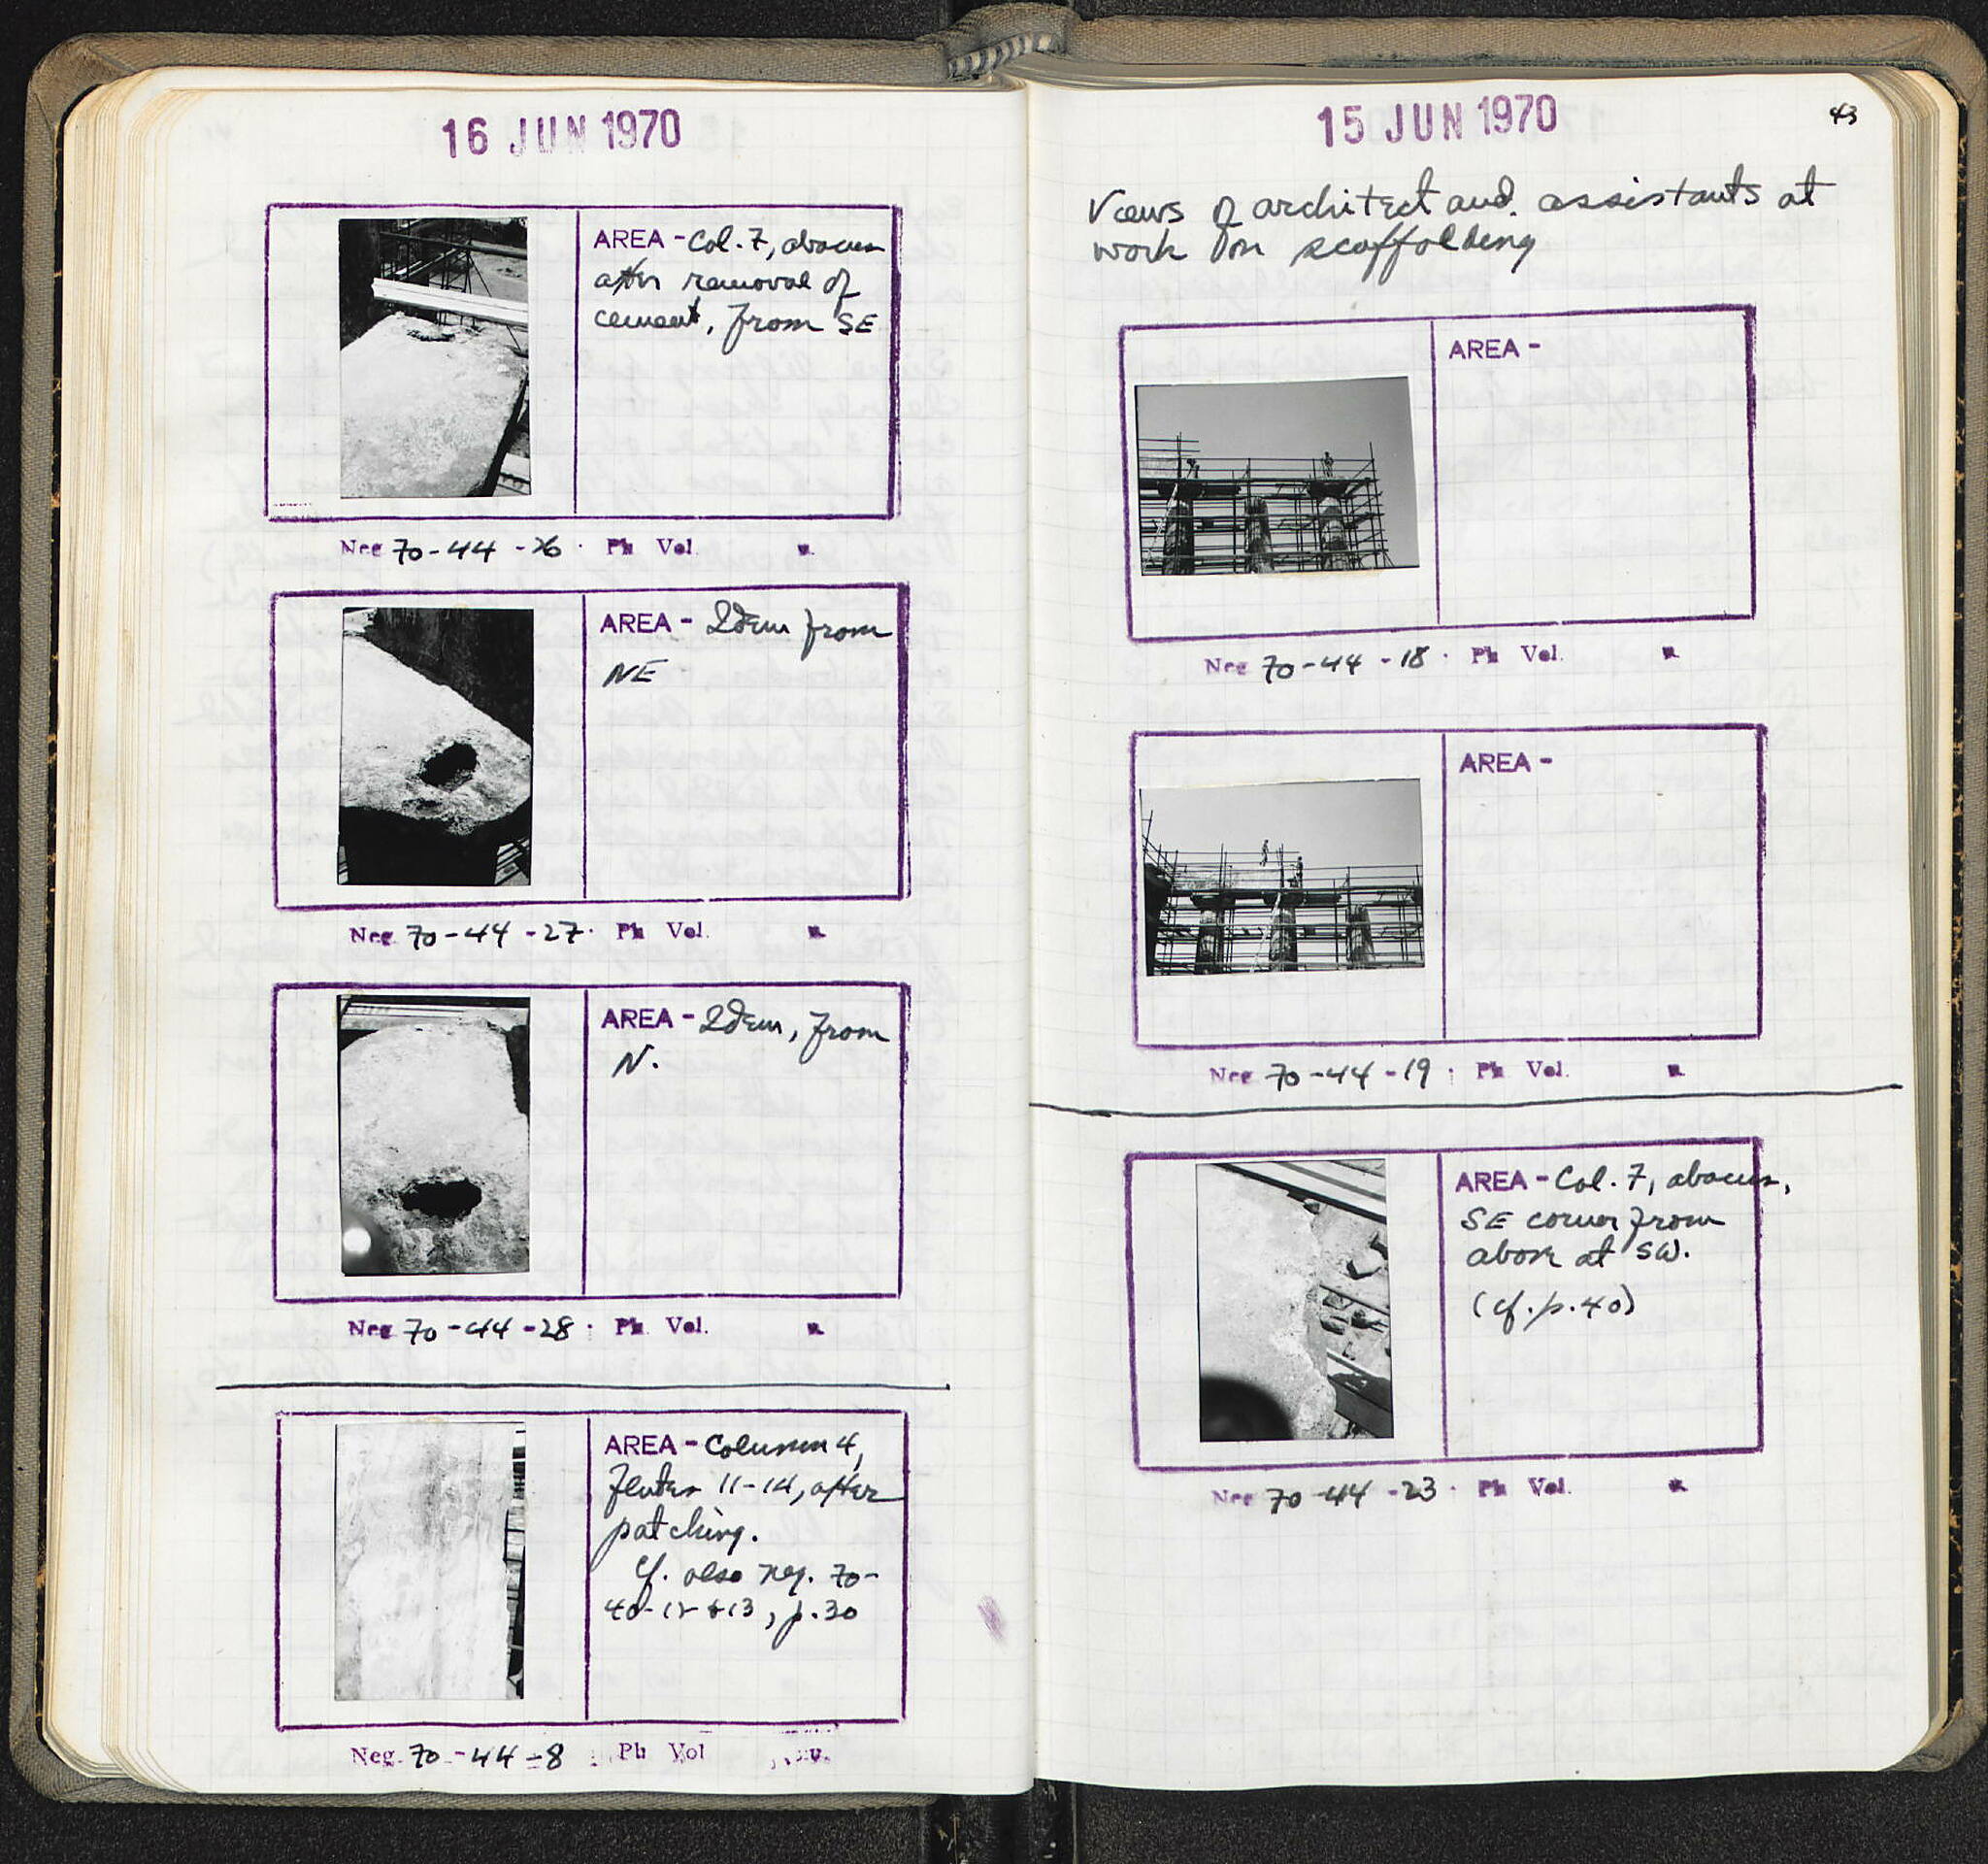 16 JUN 1970
AREA - Col. 7, abacus
after removal of
cement, from SE
Neg 70-44-26 · Ph Vol.
AREA - Idem from
NE
Neg. 70-44-27 · Ph Vol.
AREA - Idem, from
N.
Neg 70-44-28 · Ph Vol.
AREA - Column 4,
flutes 11-14, after
patching.
Cf. also neg. 70-
40-12 + 13, p. 30
Neg. 70-44-8 Ph Vol
15 JUN 1970
43
Views of architect and assistants at
work on scaffolding
AREA -
Neg 70-44-18 · Ph Vol.
AREA -
Neg 70-44-19 · Ph Vol.
AREA - Col. 7, abacus,
SE corner from
above at SW.
(cf. p. 40)
Neg 70-44-23 · Ph Vol.